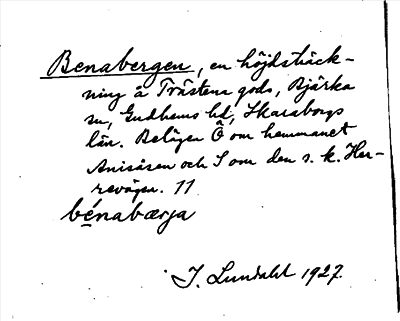 Benabergen, en höjdsträck-
ning å Trästena gods, Bjärka
sn, Gudhems hd, Skaraborgs
län. Belägen Ö om hemmanet
Anisåsen och S om den s.k. Her-
revägen. 11
bénabærja
J. Lundahl 1927.